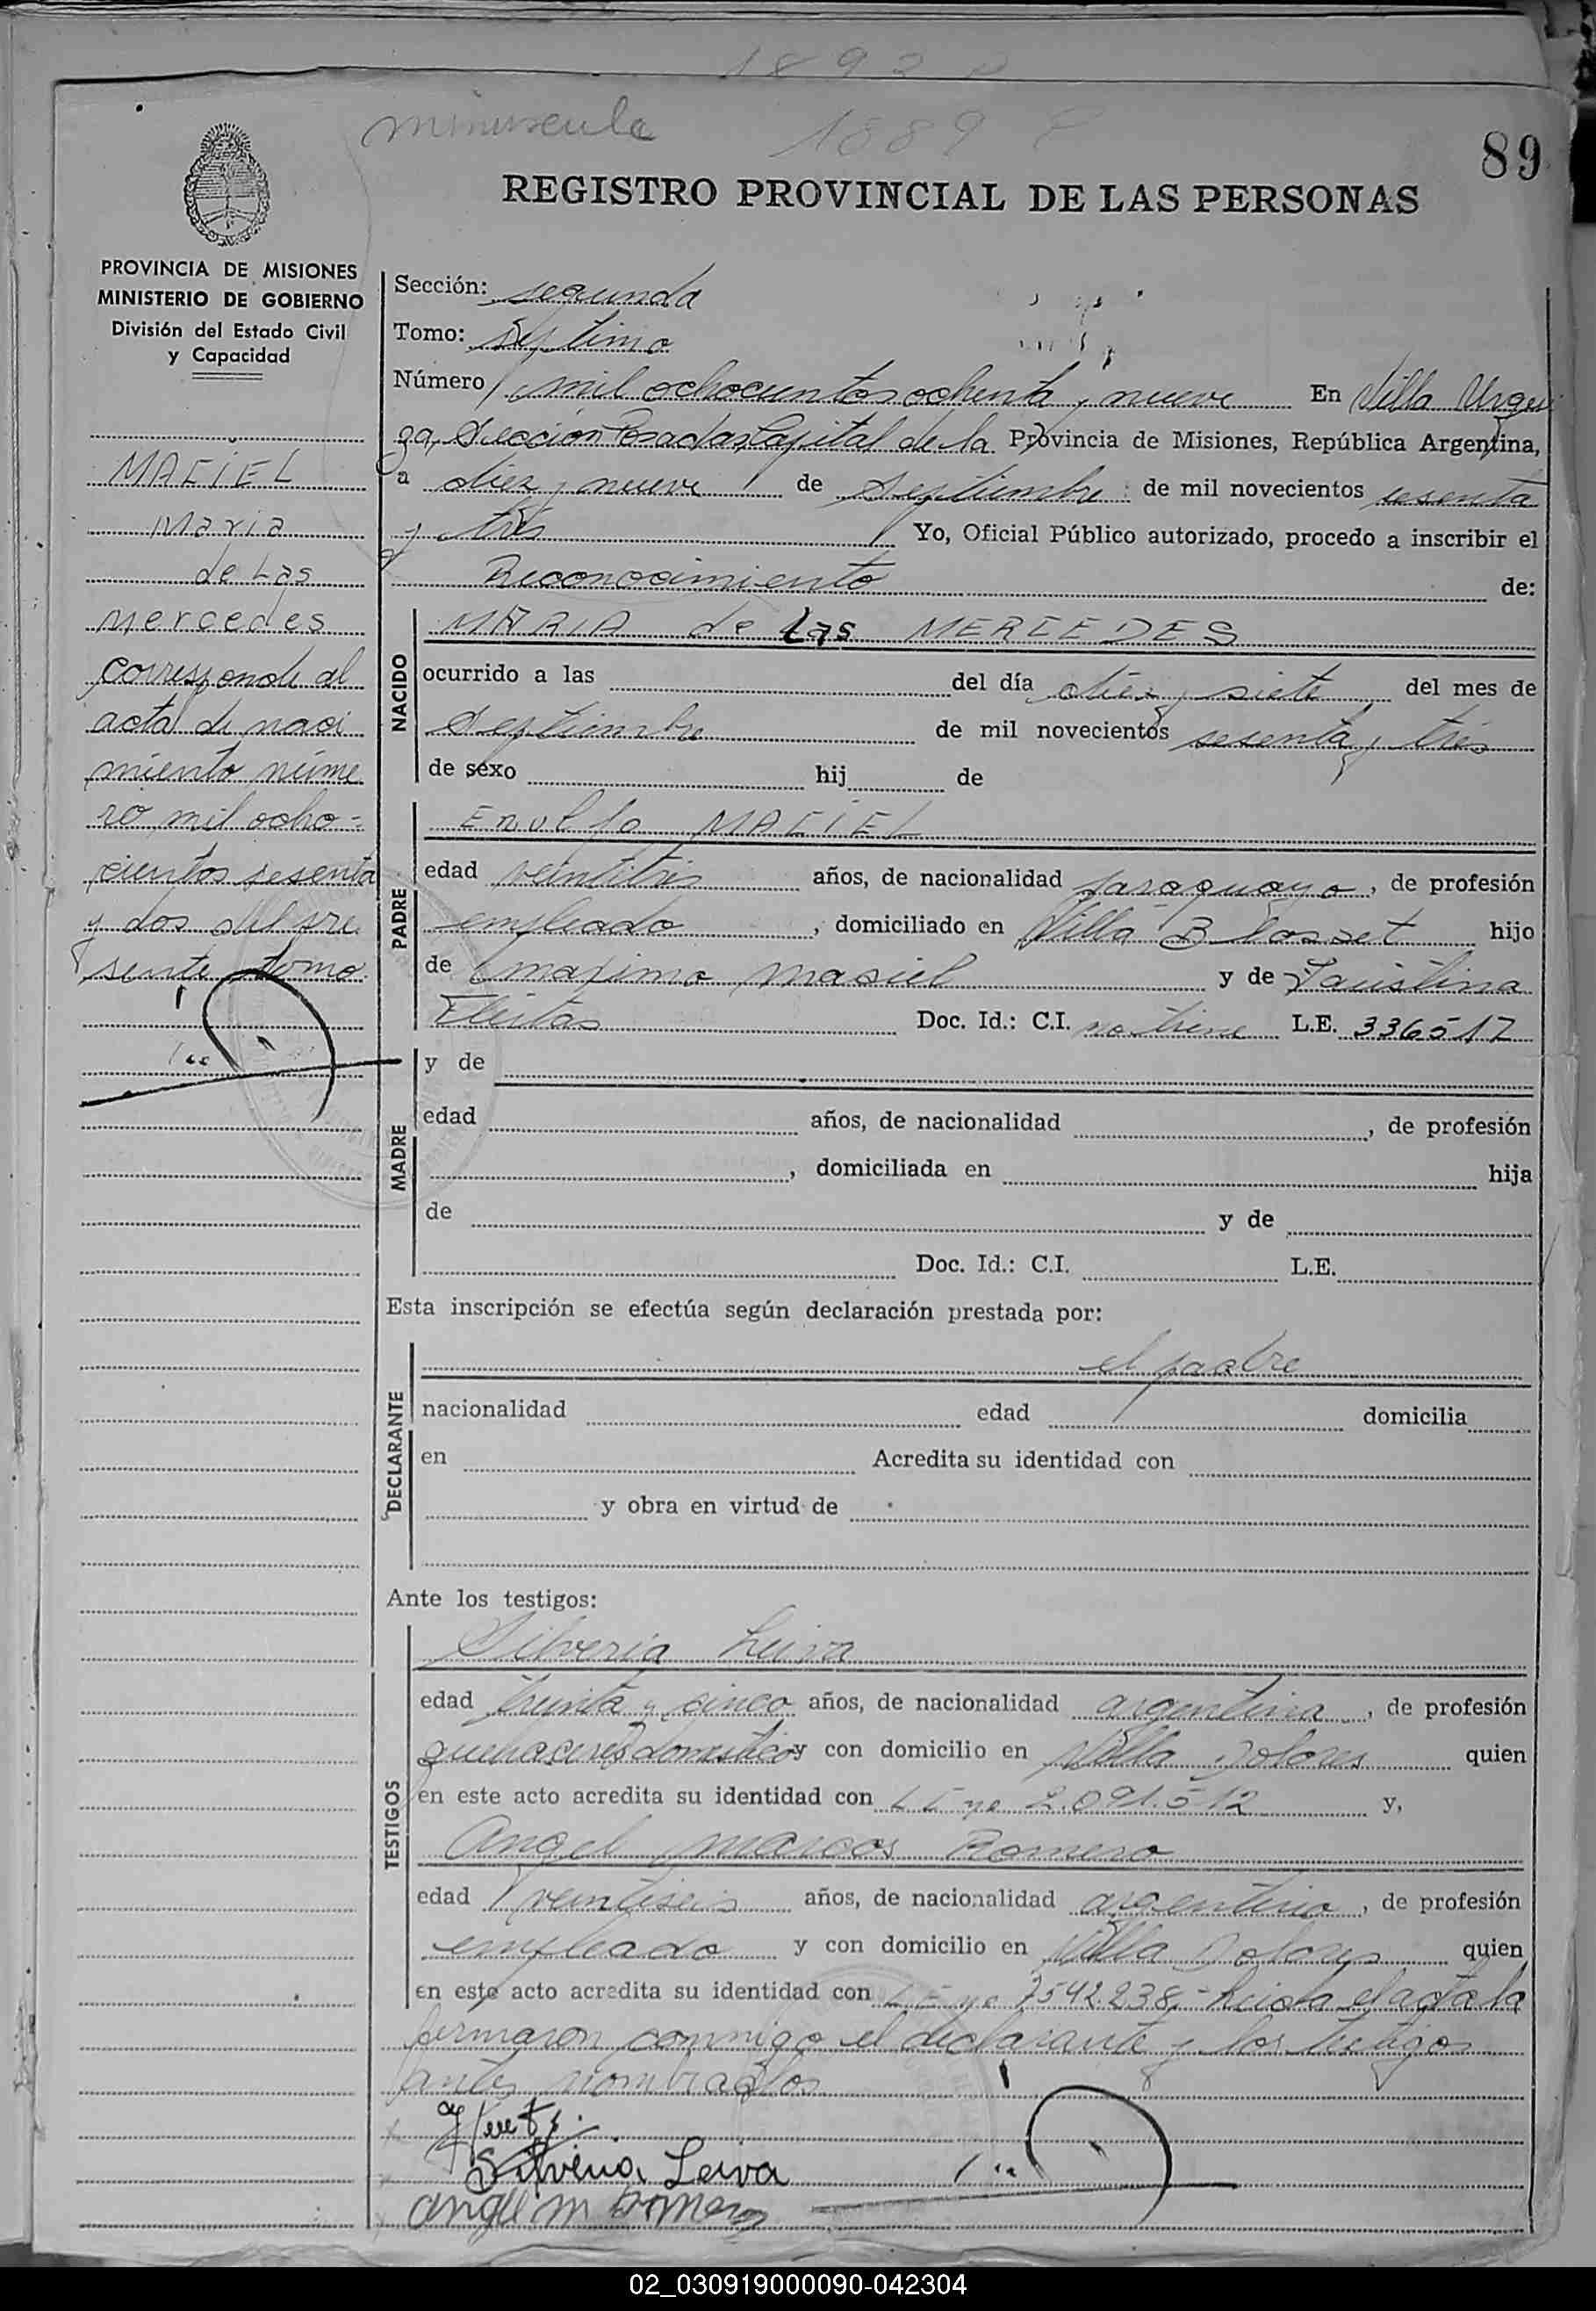 minuscula
1889
89
REGISTRO PROVINCIAL DE LAS PERSONAS
PROVINCIA DE MISIONES
MINISTERIO DE GOBIERNO
División del Estado Civil
y Capacidad
MACIEL
Maria
de Las
Mercedes
corresponde al
acta de naci
miento núme
ro mil ocho-
cientos sesenta
y dos del pre
sente tomo
Sección: segunda
Tomo: Septimo
Número mil ochocientos ochenta y nueve En Villa Urqui
za, Sección Posadas, Capital de la Provincia de Misiones, República Argentina,
a diez y nueve de Septiembre de mil novecientos sesenta
y tres Yo, Oficial Público autorizado, procedo a inscribir el
Reconocimiento de:
NACIDO
MARIA de Las MERCEDES
ocurrido a las del día diez y siete del mes de
Septiembre de mil novecientos sesenta y tres
de sexo hij de
PADRE
MACIEL
edad veintitres años, de nacionalidad paraguayo, de profesión
empleado, domiciliado en Villa Blosset hijo
de maximo maciel y de Faustina
Fleitas Doc. Id.: C.I. no tiene L.E. 336517
MADRE
y de
edad años, de nacionalidad , de profesión
, domiciliada en hija
de y de
Doc. Id.: C.I. L.E.
Esta inscripción se efectúa según declaración prestada por:
DECLARANTE
el padre
nacionalidad edad domicilia
en Acredita su identidad con
y obra en virtud de
Ante los testigos:
TESTIGOS
Silveria Leiva
edad treinta y cinco años, de nacionalidad argentina, de profesión
quehaceres domesticos y con domicilio en Villa Dolores quien
en este acto acredita su identidad con L E no 2.091.512 y,
Angel Marcos Romero
edad veintiseis años, de nacionalidad argentino, de profesión
empleado y con domicilio en Villa Dolores quien
en este acto acredita su identidad con L E no 7542.238- Leida el acta la
firmaron conmigo el declarante y los testigos
antes nombrados
Silveria Leiva
Angel M Romero
02_030919000090-042304